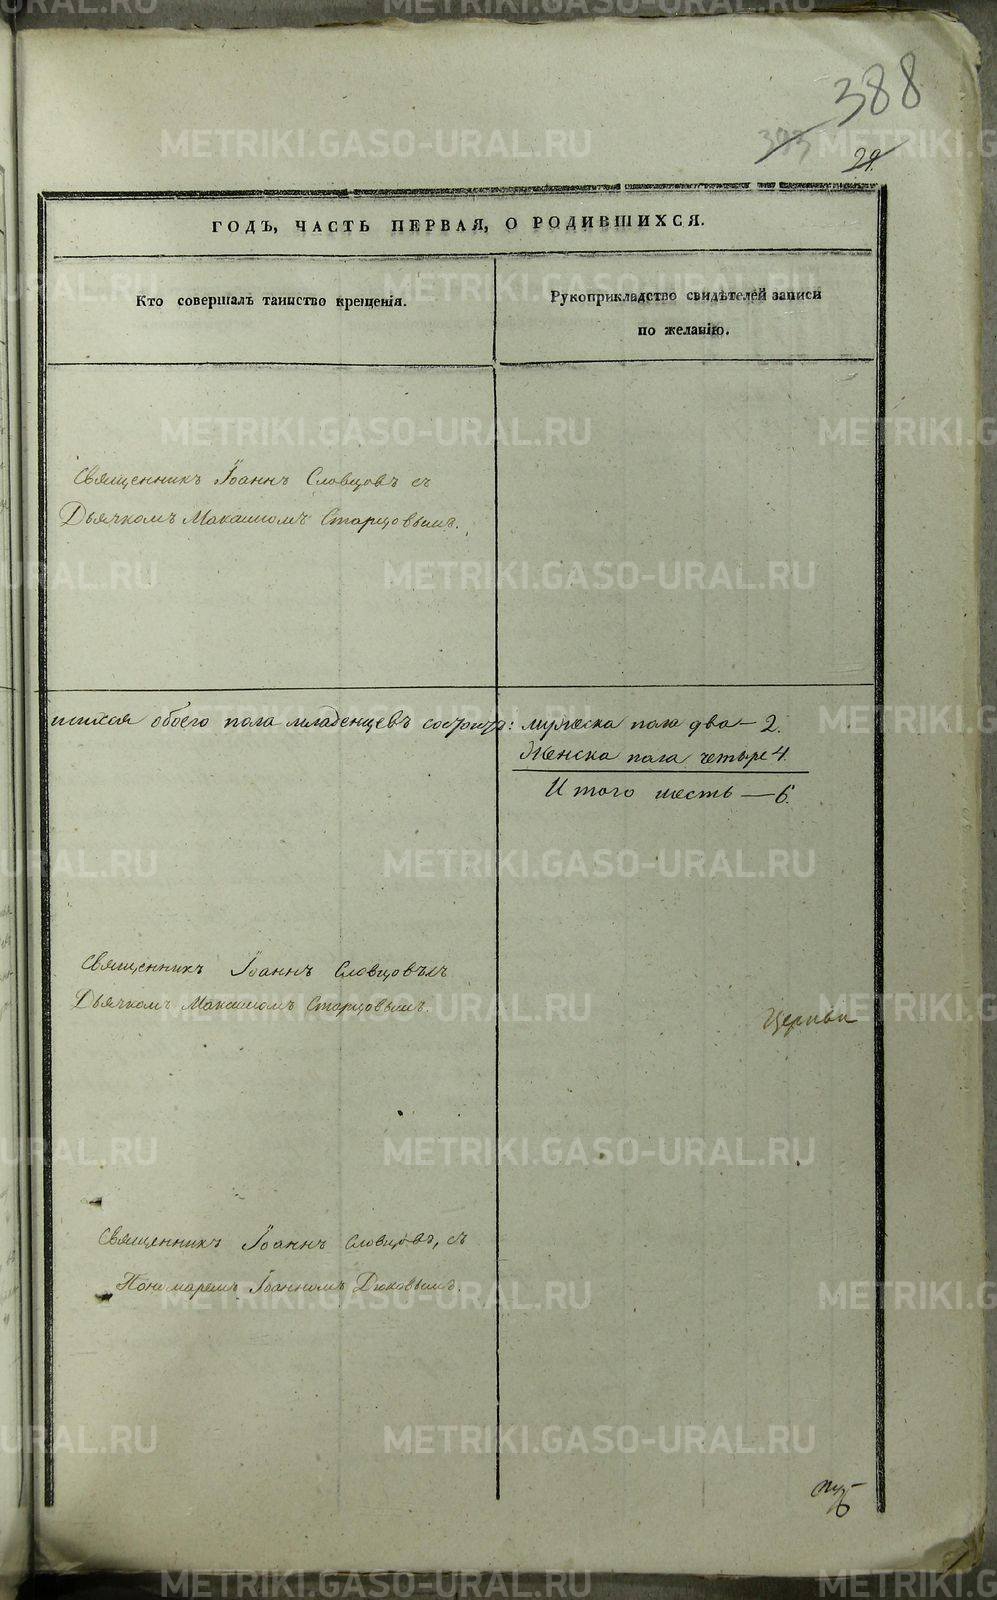 388
393
29.
ГОДЪ, ЧАСТЬ ПЕРВАЯ, О РОДИВШИХСЯ.
Кто совершалъ таинство крещенія.
Рукоприкладство свидѣтелей записи
по желанію.
Священникъ Іоаннъ Словцовъ съ
Дьячкомъ Максимомъ Старцовымъ.
шихся обоего пола младенцевъ состоитъ: мужеска пола два — 2.
Женска пола четыре 4.
Итого шесть — 6.
Священникъ Іоаннъ Словцовъ съ
Дьячкомъ Максимомъ Старцовымъ.
Церкви
Священникъ Іоаннъ Словцовъ, съ
Пономаремъ Іоанномъ Дюковымъ.
METRIKI.GASO-URAL.RU